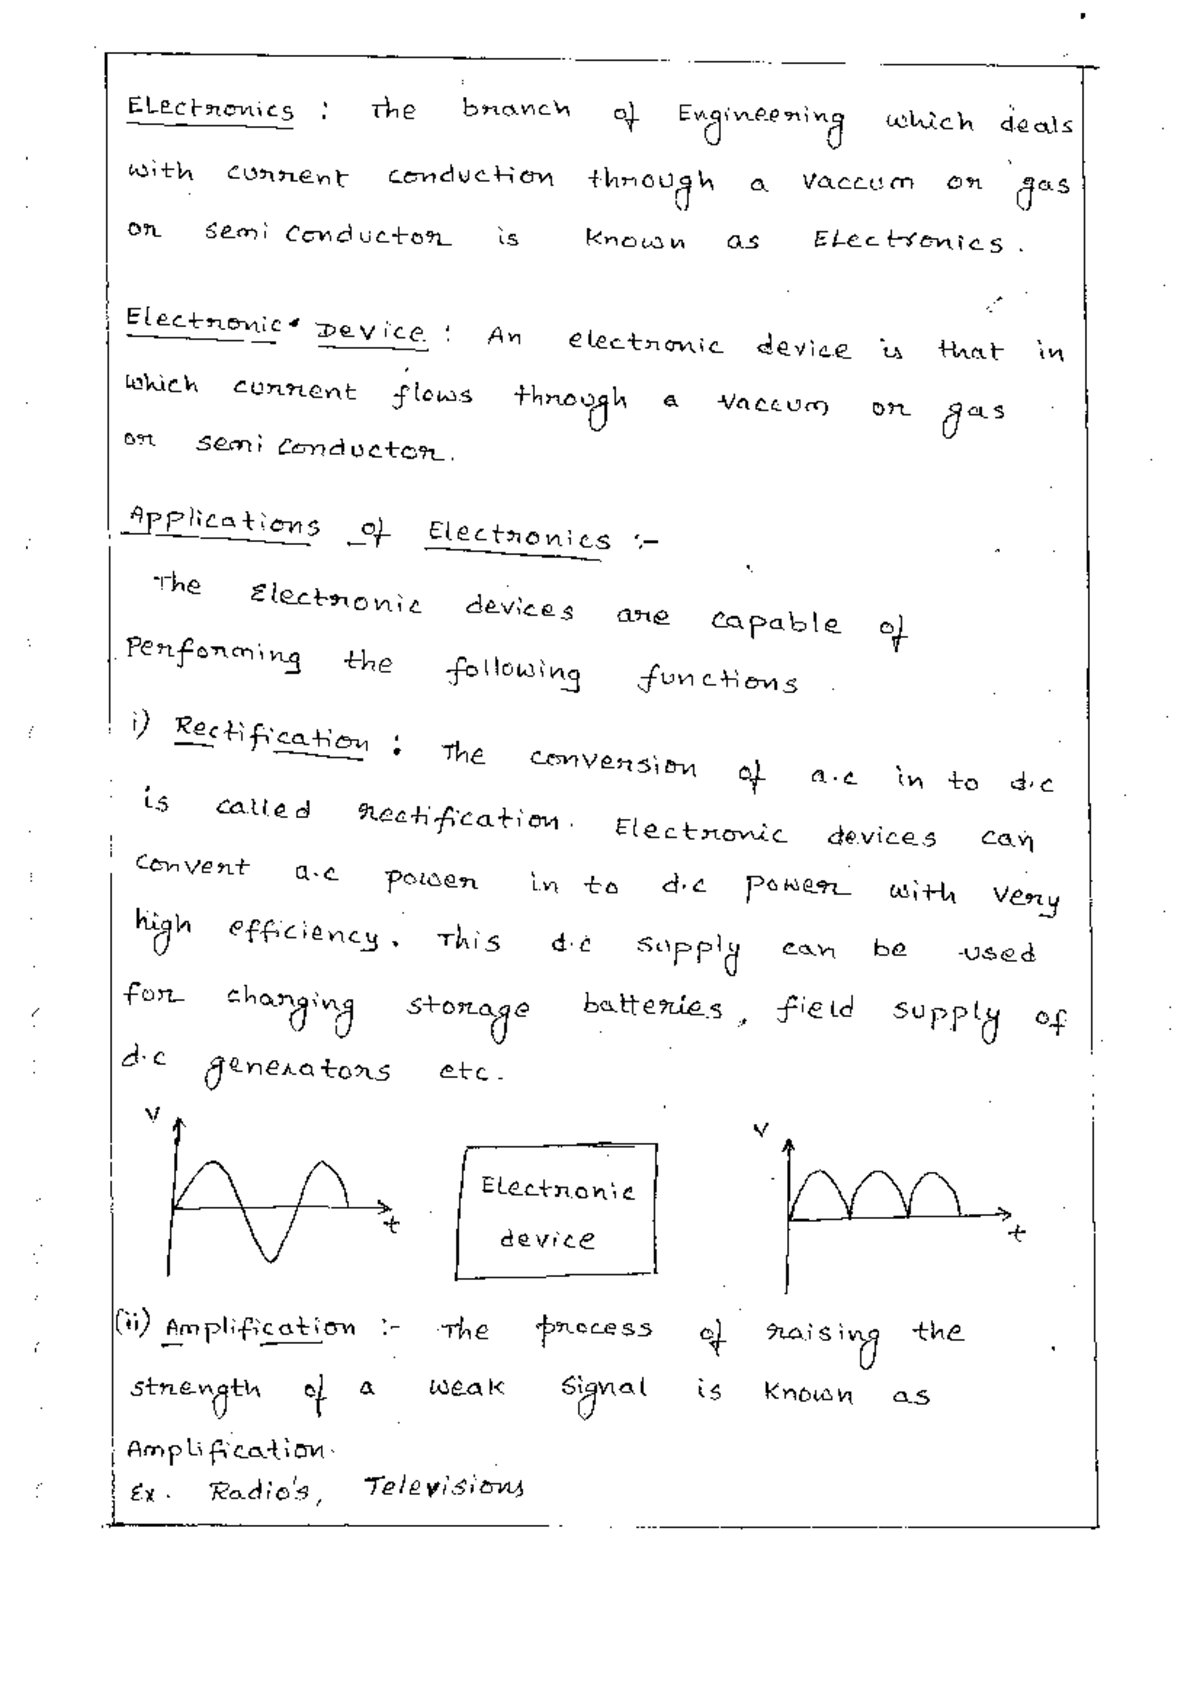 Electronics : The branch of Engineering which deals
with current conduction through a vaccum or gas
or semi conductor is known as Electronics.
Electronic Device : An electronic device is that in
which current flows through a vaccum or gas
or semi conductor.
Applications of Electronics :-
The Electronic devices are capable of
Performing the following functions
i) Rectification : The conversion of a.c in to d.c
is called rectification. Electronic devices can
convert a.c power in to d.c power with very
high efficiency. This d.c supply can be used
for changing storage batteries, field supply of
d.c generators etc.
V
t
Electronic
device
V
t
(ii) Amplification :- The process of raising the
strength of a weak signal is known as
Amplification.
Ex. Radio's, Televisions